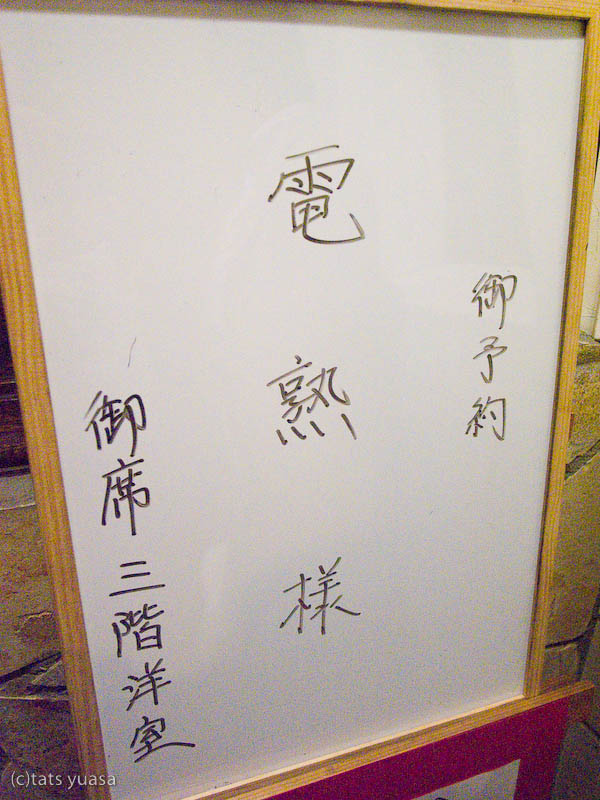 御予約
電熟様
御席三階洋室
(c)tats yuasa